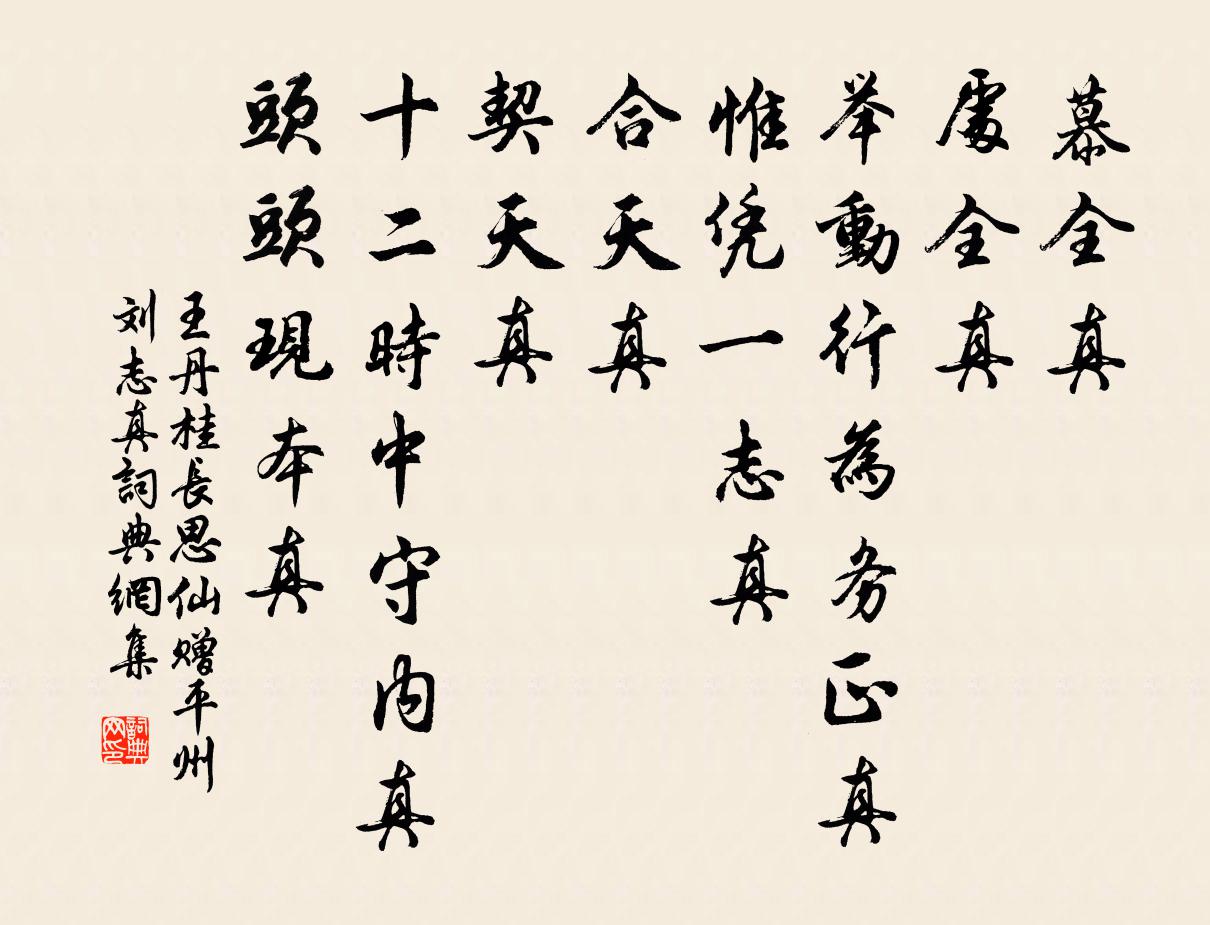 慕全真
處全真
举動行為务正真
惟凭一志真
合天真
契天真
十二時中守内真
頭頭現本真
王丹桂長思仙赠平州
刘志真詞典網集
詞典
网印